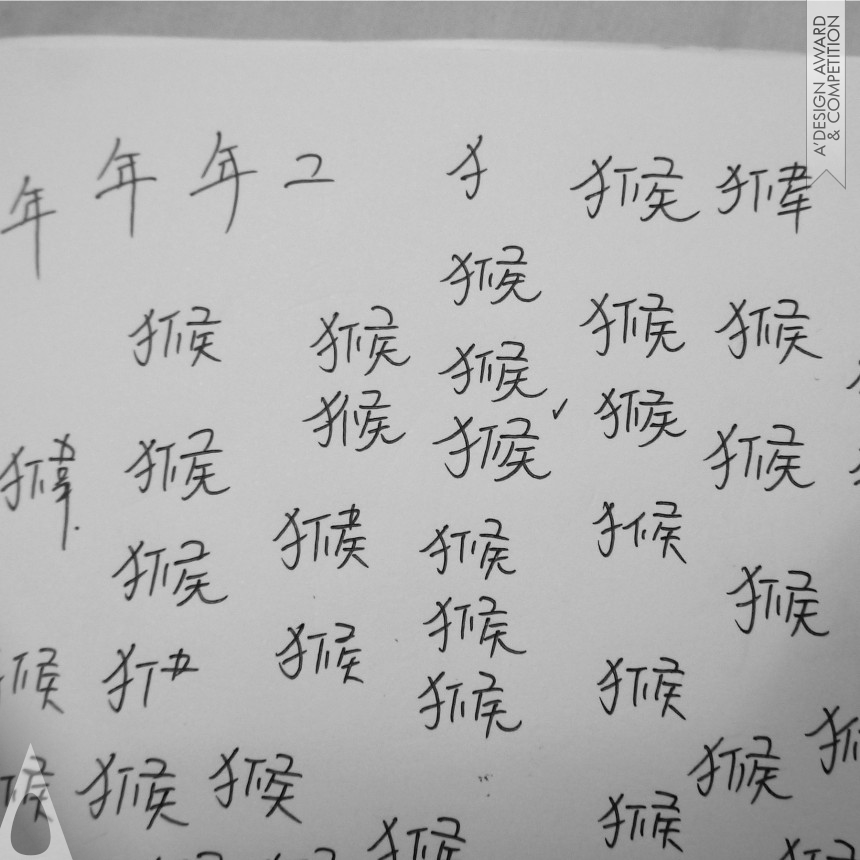 A' DESIGN AWARD
& COMPETITION
年 年 年 犭 猴
猴
猴 猴 猴 猴
猴
猴 猴 ✓ 猴
猴 猴
猴 猴
猴 猴
猴 猴
猴 猴 猴
猴 猴 猴 猴
猴 猴